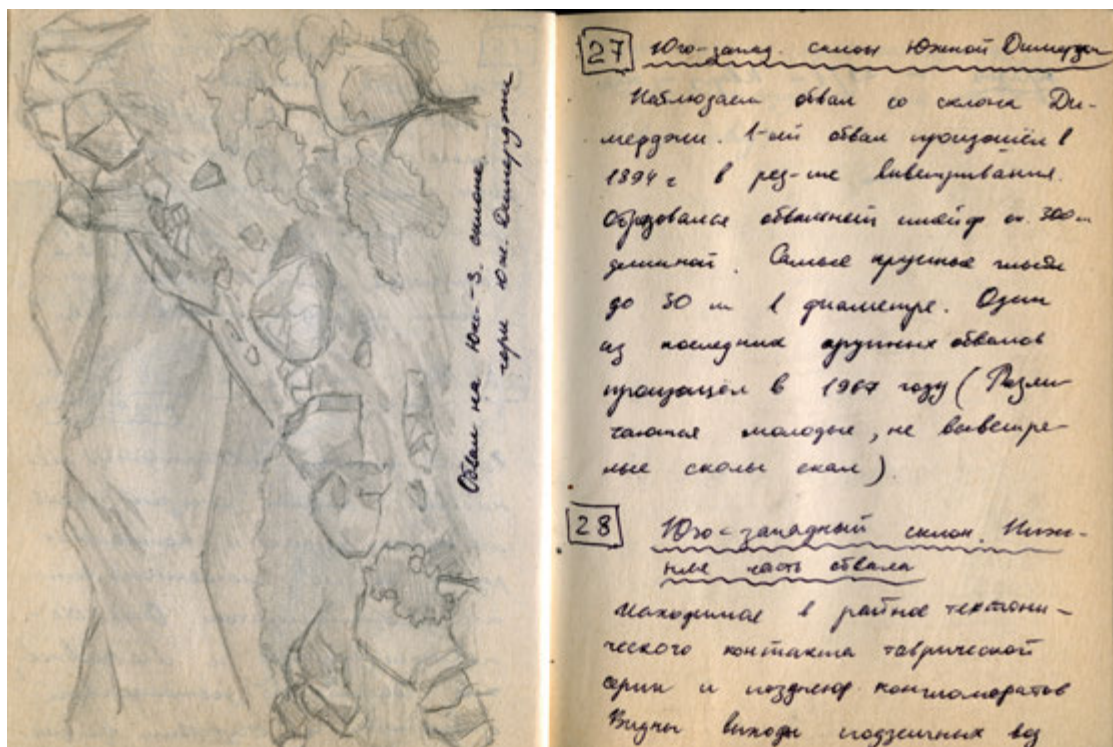 Обвал на Юго-З. склоне.
горы Юж. Димерджи
27 Юго-запад. склон Южной Димерджи
Наблюдаем обвал со склона Ди-
мерджи. 1-ый обвал произошёл в
1894 г в рез-те выветривания.
Образовался обвальный шлейф ок. 300 м
длинной. Самые крупные глыбы
до 30 м в диаметре. Один
из последних крупных обвалов
произошёл в 1967 году (Разли-
чаются молодые, не выветре-
лые сколы скал)
28 Юго-западный склон. Ниж-
няя часть обвала
Находимся в районе тектони-
ческого контакта таврической
серии и позднеюр. конгломератов
Видны выходы подземных вод